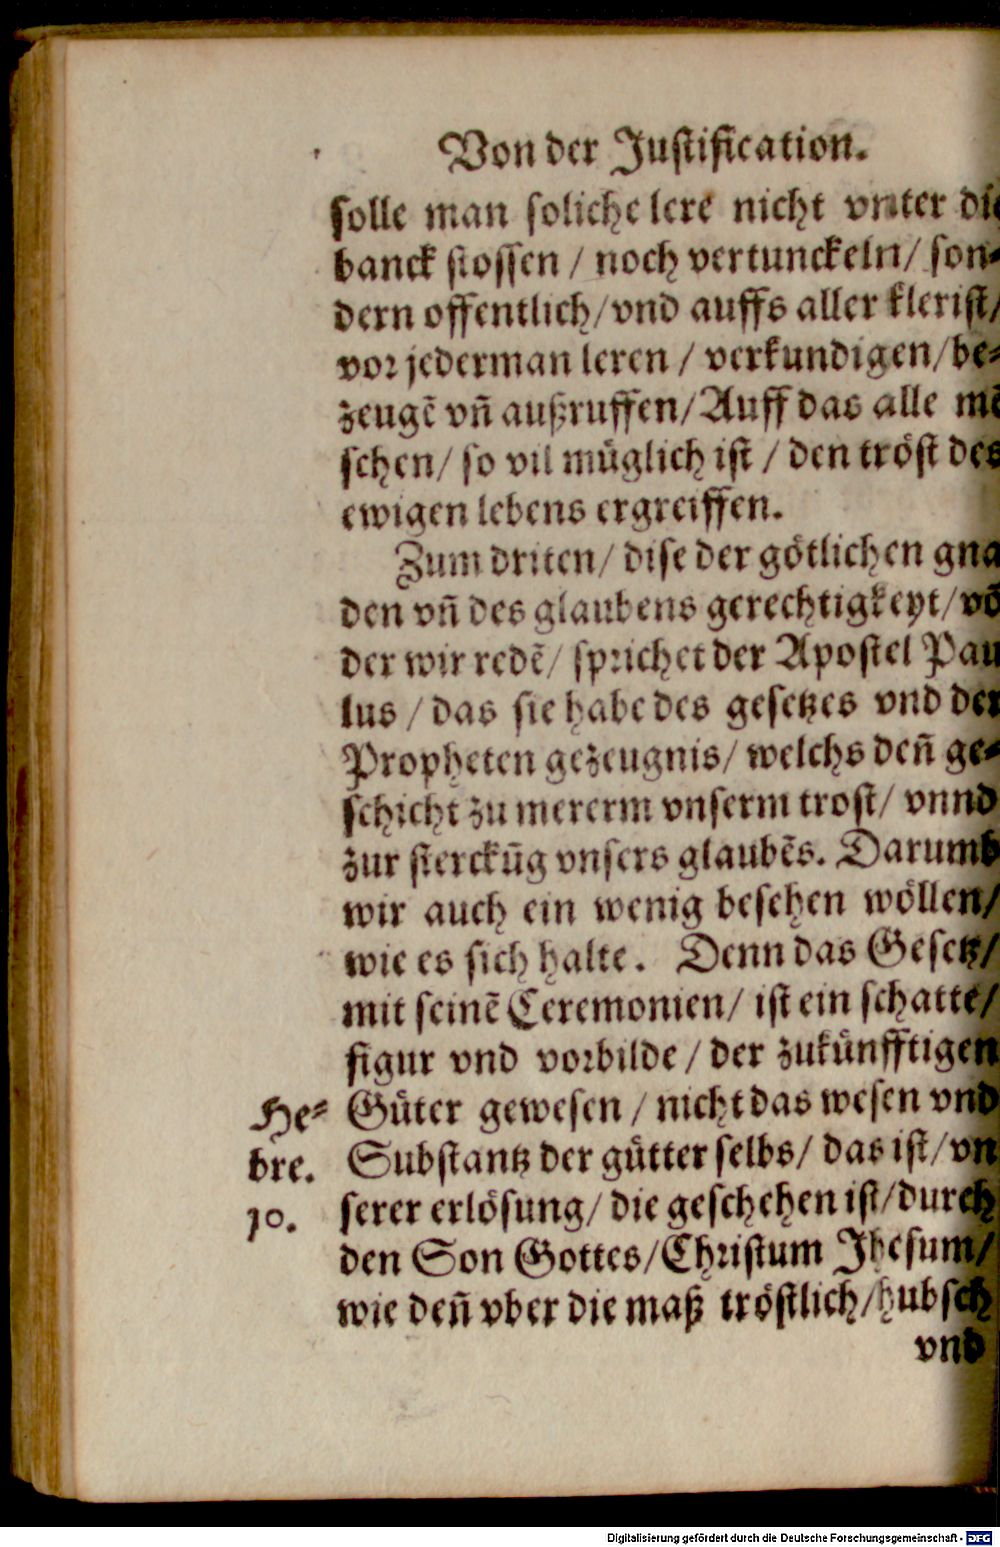 Von der Justification.
solle man soliche lere nicht vnter die
banck stossen / noch vertunckeln / son-
dern offentlich / vnd auffs aller klerist /
vor jederman leren / verkundigen / be-
zeugẽ vñ außruffen / Auff das alle mẽ
schen / so vil müglich ist / den tröst des
ewigen lebens ergreiffen.
Zum driten / dise der götlichen gna
den vñ des glaubens gerechtigkeyt / võ
der wir redẽ / sprichet der Apostel Pau
lus / das sie habe des gesetzes vnd der
Propheten gezeugnis / welchs deñ ge-
schicht zu mererm vnserm trost / vnnd
zur sterckũg vnsers glaubẽs. Darumb
wir auch ein wenig besehen wöllen /
wie es sich halte. Denn das Gesetz /
mit seinẽ Ceremonien / ist ein schatte /
figur vnd vorbilde / der zukünfftigen
He- Güter gewesen / nicht das wesen vnd
bre. Substantz der gütter selbs / das ist / vn
10. serer erlösung / die geschehen ist / durch
den Son Gottes / Christum Jhesum /
wie deñ vber die maß tröstlich / hubsch
vnd
Digitalisierung gefördert durch die Deutsche Forschungsgemeinschaft - DFG